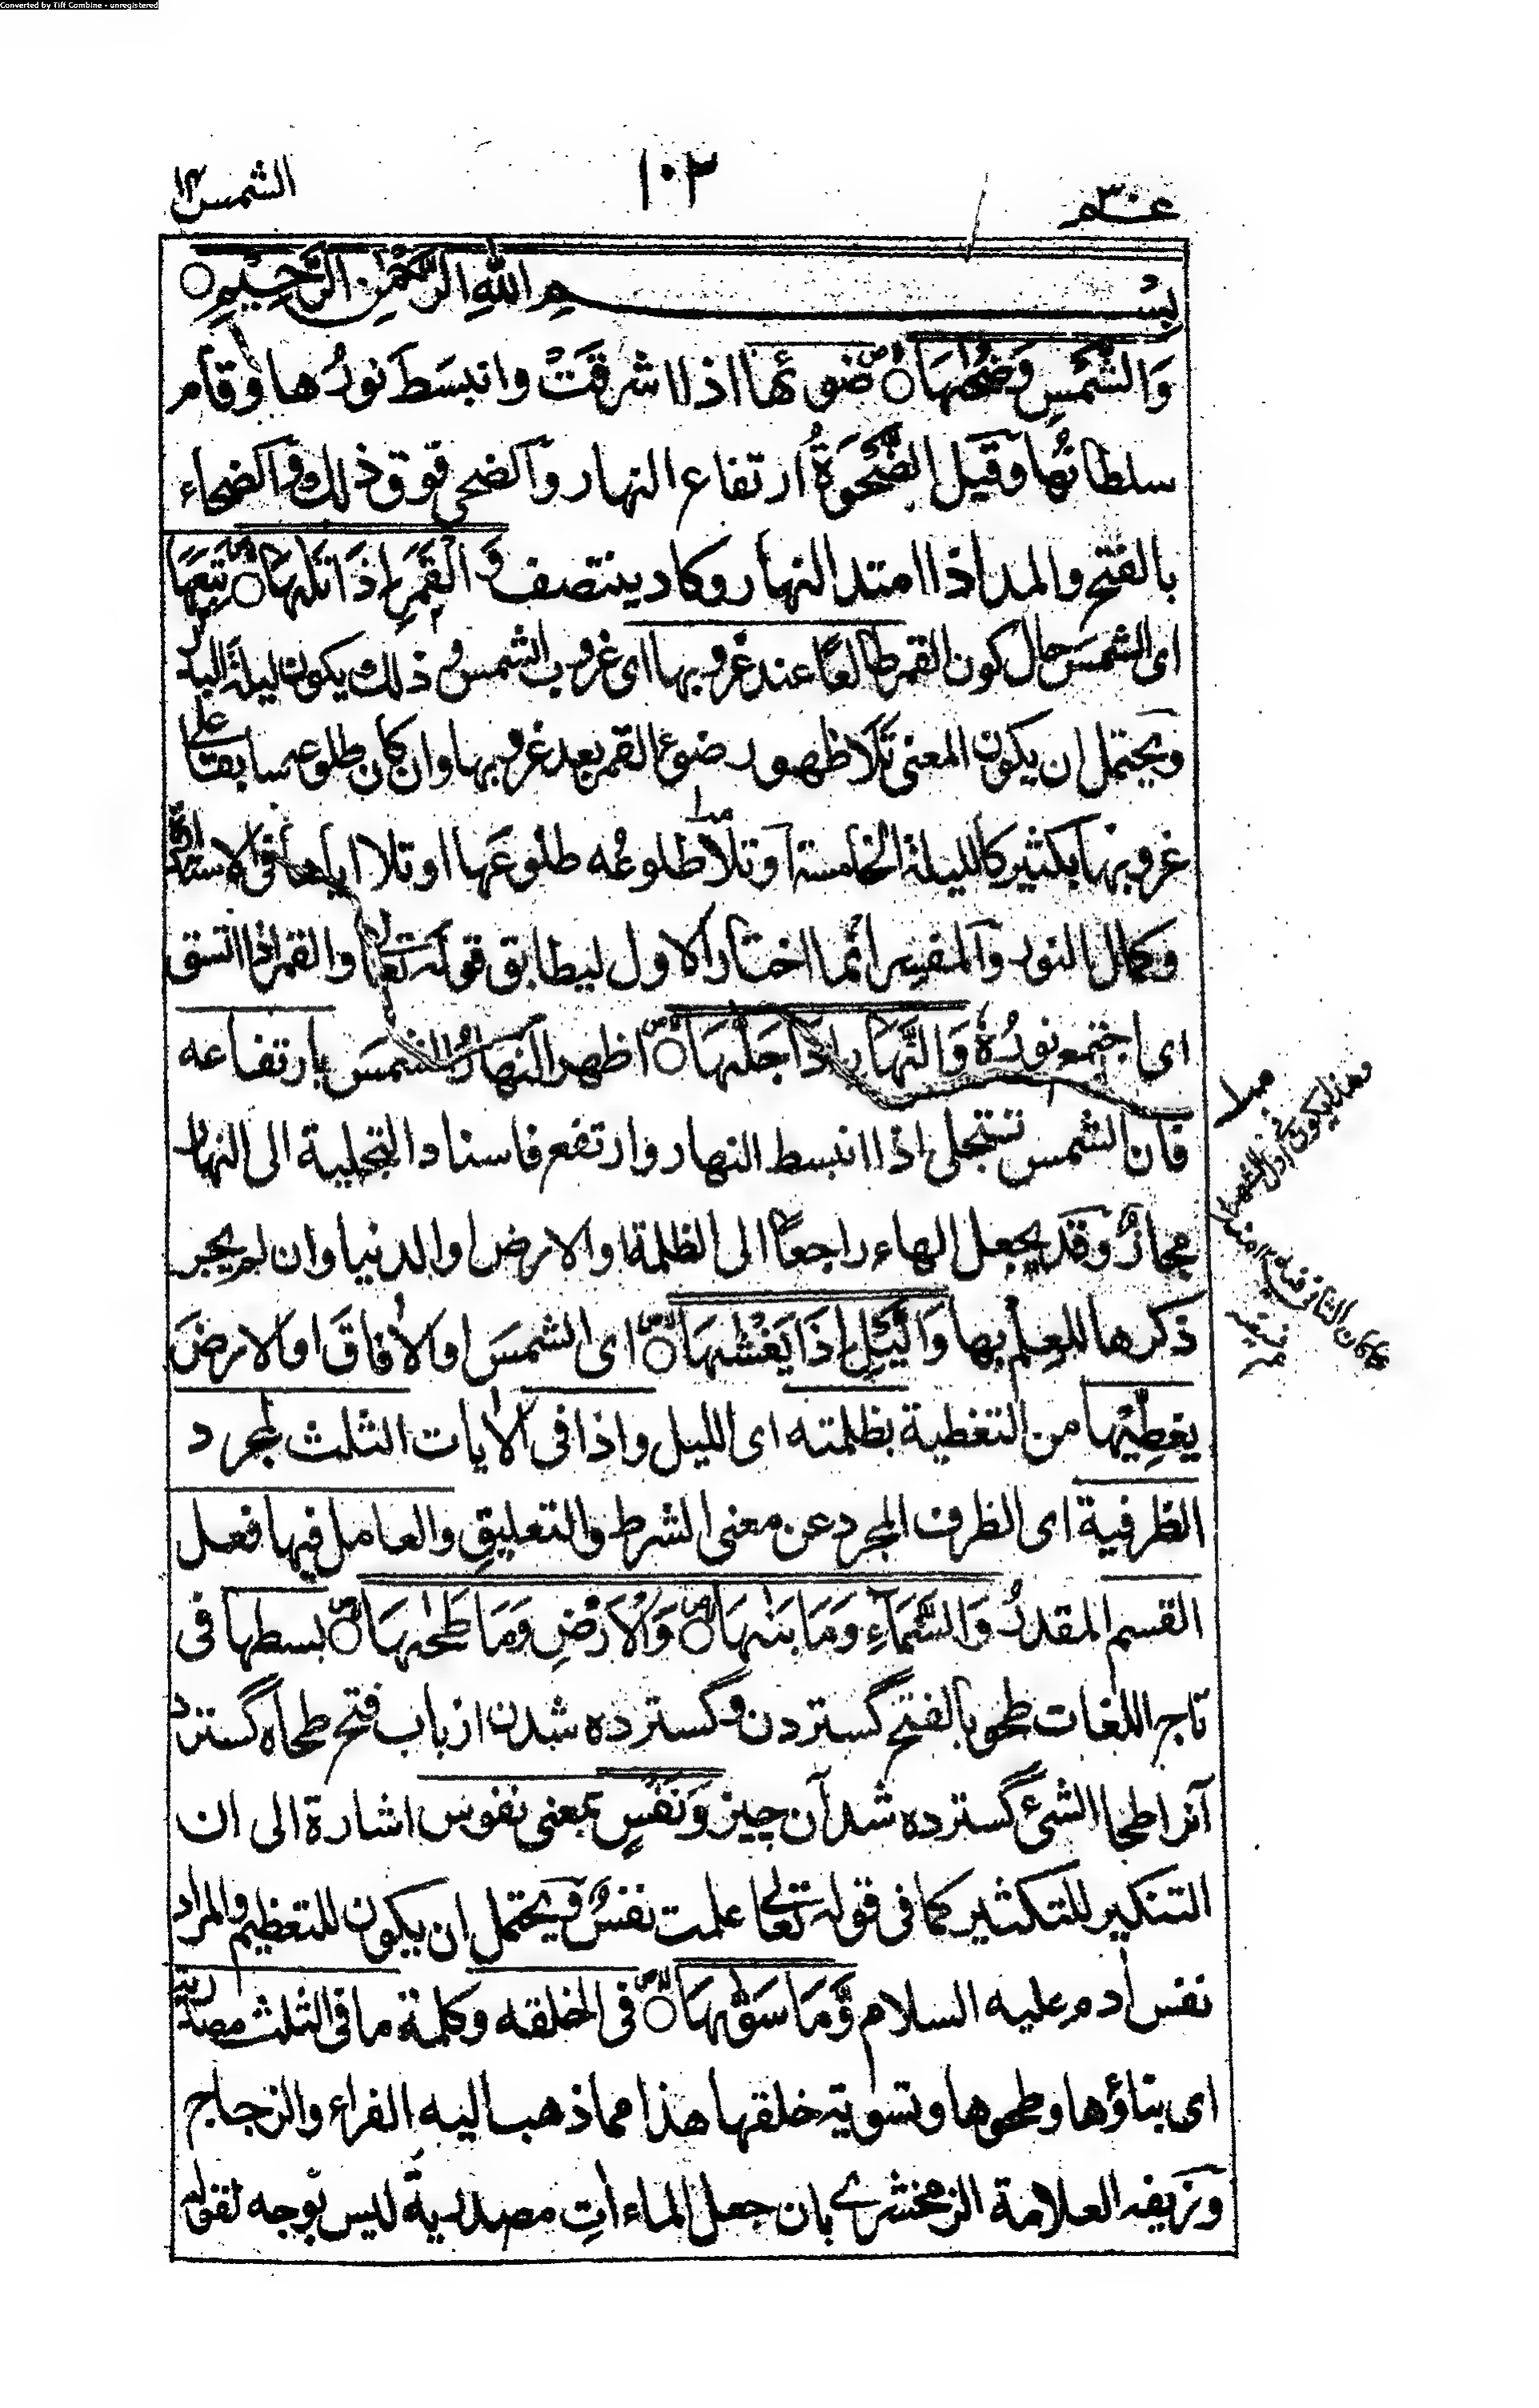 Converted by Tiff Combine - unregistered
عـم ٣٠
١٠٣
الشمس ٩١
بِسْمِ اللهِ الرَّحْمٰنِ الرَّحِيْمِ ○
وَالشَّمْسِ وَضُحٰىهَا ○ ضوئها اذا اشرقَتْ وانبسَطَ نورُها وقام
سلطانُها وقيل الضَّحْوَةُ ارتفاع النهار والضحى فوق ذلك والضحاء
بالفتح والمد اذا امتد النهار وكاد ينتصف وَالْقَمَرِ اِذَا تَلٰىهَا ○ تَبِعَهَا
اى الشمسَ حال كون القمر طالعًا عند غروبها اى غروب الشمس وذلك يكون ليلة البدر
ويحتمل ان يكون المعنى تَلَا ظهور ضوء القمر بعد غروبها وان كان طلوعه سابقا على
غروبها بكثير كالليلة الخامسة او تَلَا طلوعُه طلوعَها او تلا اياها فى الاستدارة
وكمال النور والمفسر انما اختار الاول ليطابق قوله تعالى والقمر اذا اتسق
اى اجتمع نورُهٗ وَالنَّهَارِ اِذَا جَلّٰىهَا ○ اظهر النهارُ الشمسَ بارتفاعه
فان الشمس تتجلى اذا انبسط النهار وارتفع فاسناد التجلية الى النهار
مجازٌ وقد يجعل الهاء راجعًا الى الظلمة او الارض او الدنيا وان لم يجر
ذكرها للعلم بها وَالَّيْلِ اِذَا يَغْشٰىهَا ○ اى الشمسَ او الآفاقَ او الارضَ
يغطِّيْها من التغطية بظلمته اى الليل واذا فى الآيات الثلث لمجرد
الظرفية اى الظرف المجرد عن معنى الشرط والتعليق والعامل فيها فعل
القسم المقدرُ وَالسَّمَآءِ وَمَا بَنٰىهَا ○ وَالْاَرْضِ وَمَا طَحٰىهَا ○ بسطها فى
تاج اللغات طحو بالفتح گستردن وگسترده شدن از باب فتح طحاه گسترد
آنرا طحا الشئ گسترده شد آن چيز وَنَفْسٍ بمعنى نفوس اشارة الى ان
التنكير للتكثير كما فى قوله تعالى علمت نفسٌ ويحتمل ان يكون للتعظيم والمراد
نفس آدم عليه السلام وَّمَا سَوّٰىهَا ○ فى الخلقه وكلمة ما فى الثلث مصدرية
اى بناؤها وطحوها وتسوية خلقها هذا مما ذهب اليه الفراء والزجاج
وزيفه العلامة الزمخشرى بان جعل الماءاتِ مصدرية ليس بوجه لقوله